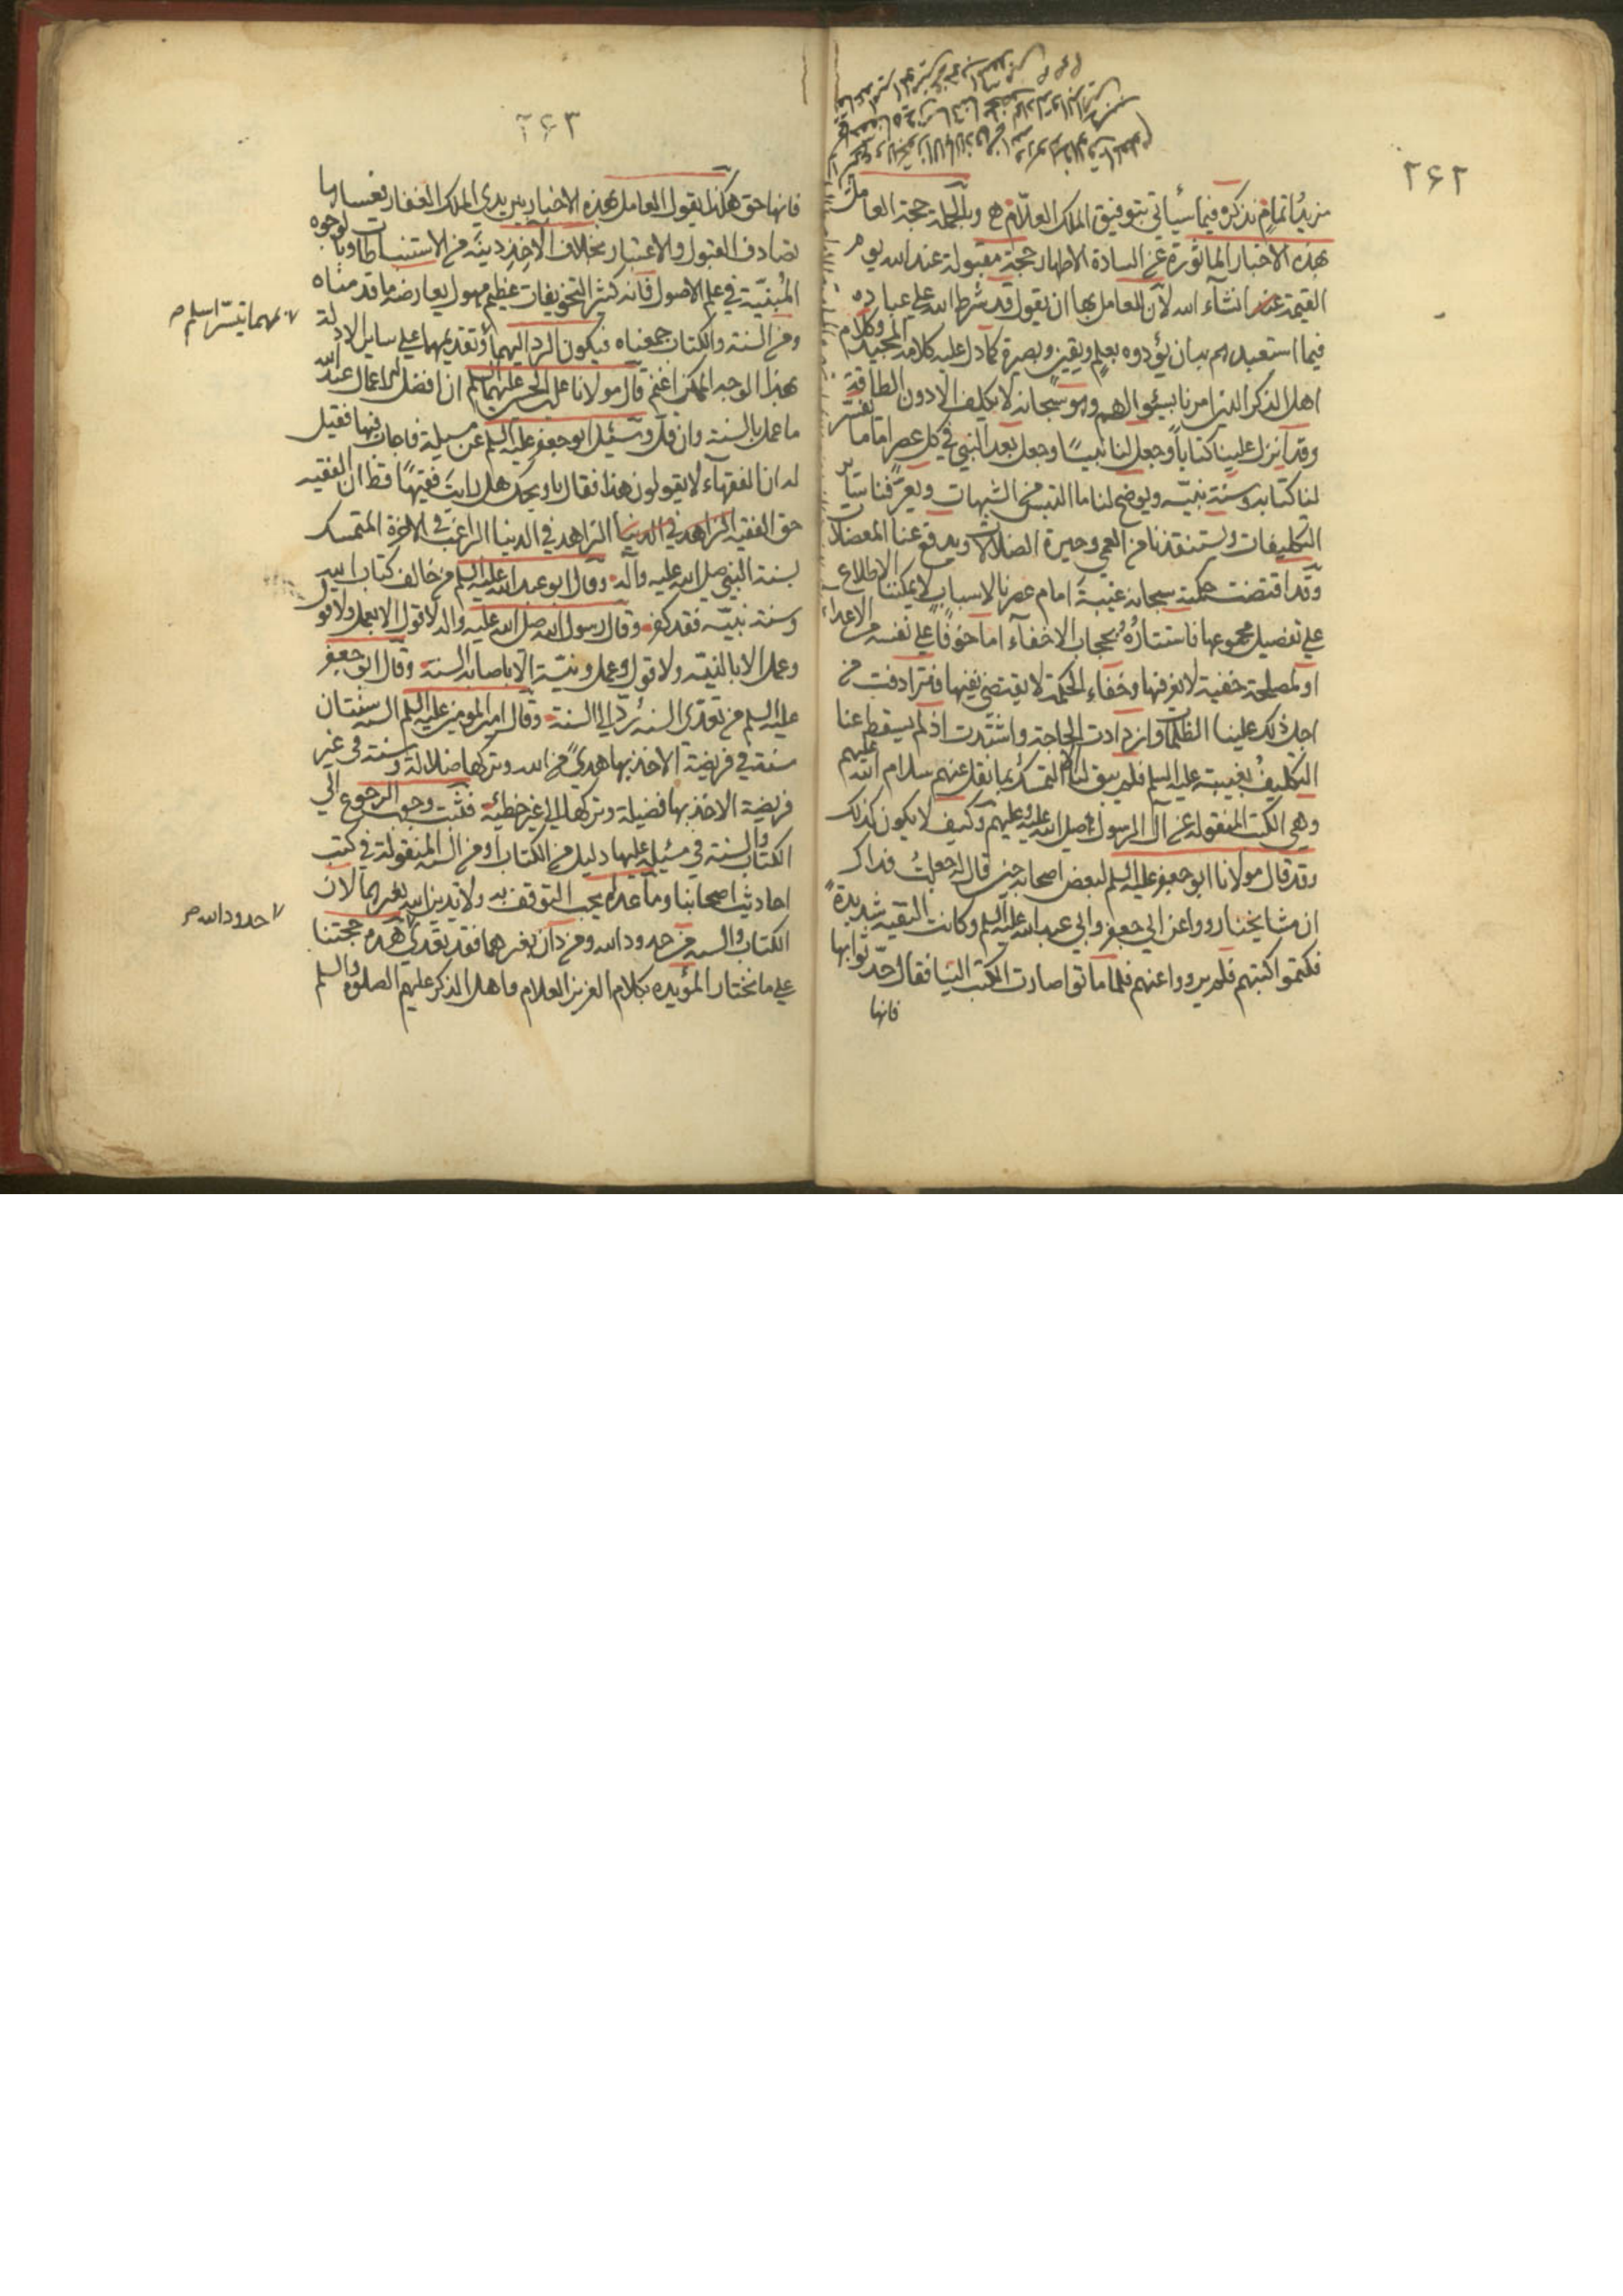 ٢۶٢
مزيد اتمام نذكره فيما سيأتي بتوفيق الملك العلام وبالجملة حجة العامل
بهذه الاخبار الماثورة عن السادة الاطهار حجة مقبولة عند الله يوم
القيمة انشاء الله لان للعامل بها ان يقول قد شرط الله على عباده
فيما استعبدهم به بان يؤدوه بعلم ويقين وبصيرة كما دل عليه كلامه المجيد وكلام
اهل الذكر الذين امرنا بسؤالهم وهو سبحانه لا يكلف الا دون الطاقة
وقد انزل علينا كتاباً وجعل لنا نبيّاً وجعل بعد النبي في كل عصر اماما يفسّر
لنا كتابه وسنة نبيّه ويوضح لنا ما التبس من الشبهات ويعرّفنا سائر
التكليفات ويستنقذنا من العمى وحيرة الضلالات ويدفع عنا المعضلات
وقد اقتضت حكمته سبحانه غيبة امام عصرنا لاسباب لا يمكننا الاطلاع
على تفصيل مجموعها فاستتاره بحجاب الاخفاء اما خوفاً على نفسه من الاعداء
او لمصلحة خفية لا نعرفها وخفاء الحكمة لا يقتضى نفيها فترادفت من
اجل ذلك علينا الظلمات وازدادت الحاجة واشتدت اذ لم يسقط عنا
التكليف بغيبته عليه السلم فلم يبق لنا الا التمسك بما نقل عنهم سلام الله عليهم
وهى الكتب المنقولة عن آل الرسول صلى الله عليه وعليهم وكيف لا يكون كذلك
وقد قال مولانا ابو جعفر عليه السلم لبعض اصحابه حين قال له جعلت فداك
ان مشايخنا رووا عن ابي جعفر وابي عبد الله عليه السلم وكانت التقية شديدة
فكتموا كتبهم فلم يرووا عنهم فلما ماتوا صارت الكتب الينا فقال حدّثوا بها
فانها
٢۶٣
فانها حق هكذا يقول العامل بهذه الاخبار بين يدى الملك الغفار فعساها
تصادف القبول والاعتبار بخلاف الاخذ دينه من الاستنباطات والوجوه
المبنيّة في علم الاصول فانه كثير التخويفات عظيم مهول يعارضه ما قدمناه
ومن السنة والكتاب جمعناه فيكون الرد اليهما وتقديمهما على ساير الادلة
بهذا الوجه الممكن اغنم قال مولانا على بن الحسين عليهما السلم ان افضل الاعمال عند الله
ما عمل بالسنة وان قل وسئل ابو جعفر عليه السلم عن مسيلة فاجاب فيها فقيل
له ان الفقهاء لا يقولون هذا فقال يا ويحك هل رايت فقيهاً قط ان الفقيه
حق الفقيه الزاهد في الدنيا الزاهد في الدنيا الراغب في الاخرة المتمسك
بسنة النبي صلى الله عليه وآله وقال ابو عبد الله عليه السلم من خالف كتاب الله
وسنة نبيّه فقد كفر وقال رسول الله صلى الله عليه واله لا قول الا بعمل ولا قول
وعمل الا بالنيّه ولا قول وعمل ونيّة الا باصابة السنة وقال ابو جعفر
عليه السلم من تعدى السنة رد الى السنة وقال امير المومنين عليه السلم السنة سنتان
سنة في فريضة الاخذ بها هدى من الله وتركها ضلالة وسنة فى غير
فريضة الاخذ بها فضيلة وتركها الى غير خطيئه فثبت وجوب الرجوع الى
الكتاب والسنة في مسيله عليها دليل من الكتاب او من السنة المنقولة في كتب
احاديث اصحابنا وما عداه يجب التوقف به ولا يدين الله بغيرهما لان
الكتاب والسنة من حدود الله ومن دان بغيرهما فقد تعدى هذه حجتنا
على ما نختار المؤيده بكلام العزيز العلام واهل الذكر عليهم الصلوة والسلم
مهما تيسّر اسلم
حدود الله